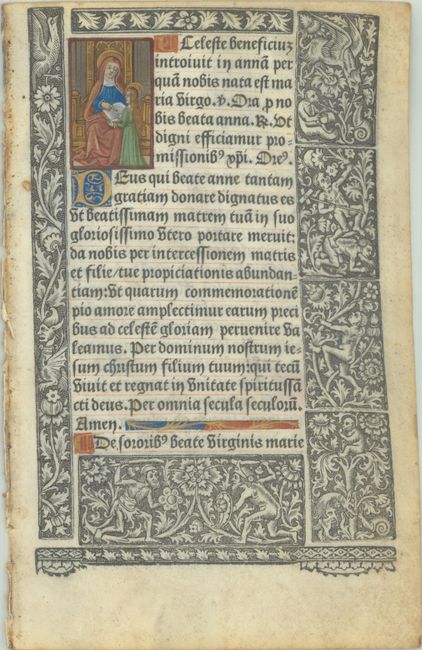 Celeste beneficiuz
introiuit in annā per
quā nobis nata est ma
ria virgo. v̄. Ora p nō
bis beata anna. R. Ut
digni efficiamur pro-
missionibꝰ xp̄i. Oreꝰ.
Deus qui beate anne tantam
gratiam donare dignatus es
vt beatissimam matrem tuā in suo
gloriosissimo vtero portare meruit:
da nobis per intercessionem matris
et filie/tue propiciationis abundan-
tiam: vt quarum commemoratione
pio amore amplectimur earum preci
bus ad celestē gloriam peruenire va
leamus. Per dominum nostrum ie-
sum christum filium tuum: qui tecū
viuit et regnat in vnitate spiritussā
cti deus. Per omnia secula seculorū.
Amen.
De sororibꝰ beate virginis marie